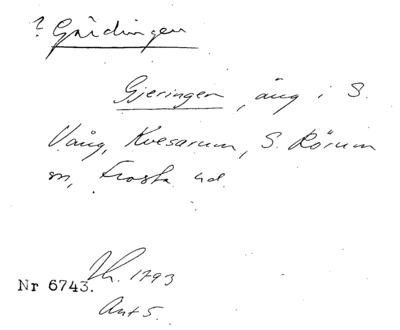 ? Gärdingen
Gjeringen, äng i S.
Vång, Kvesarum, S. Rörum
sn, Frosta hd
Nr 6743. Sk. 1793
Ant 5.